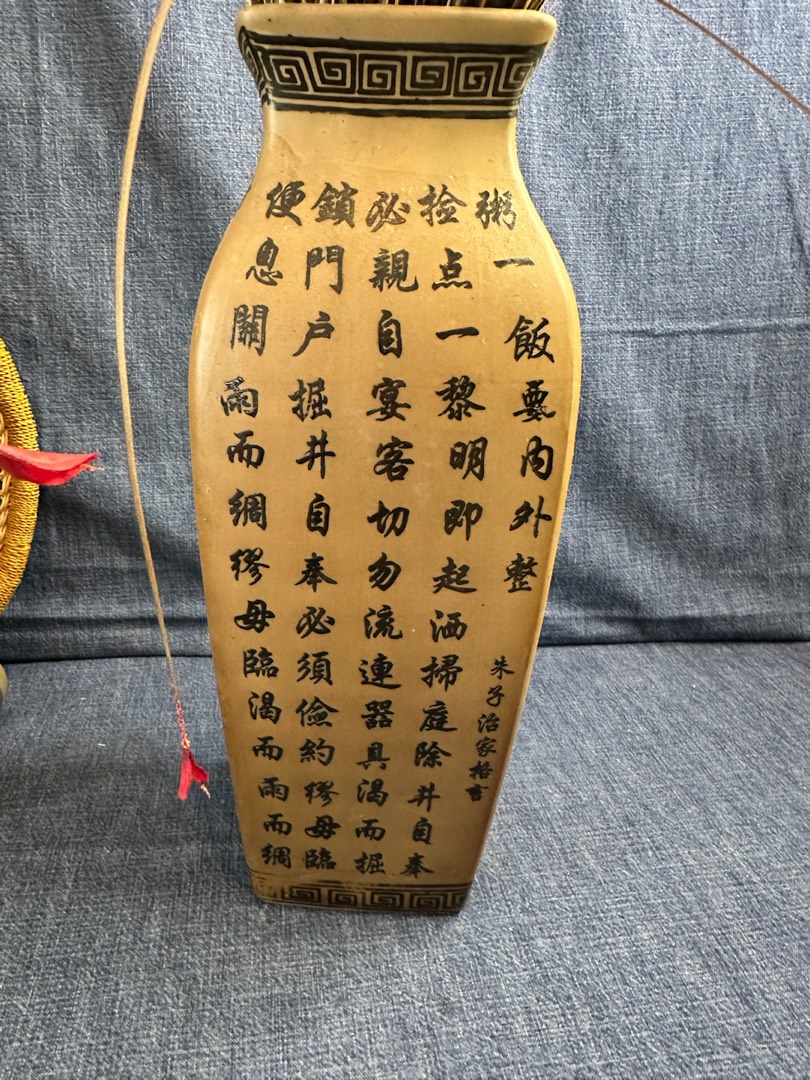 粥一飯要内外整
朱子治家格言
捡点一黎明即起洒掃庭除井自奉
必親自宴客切勿流連器具渴而掘
鎖門户掘井自奉必須儉約繆毋臨
便息關雨而綢繆毋臨渴而雨而綢